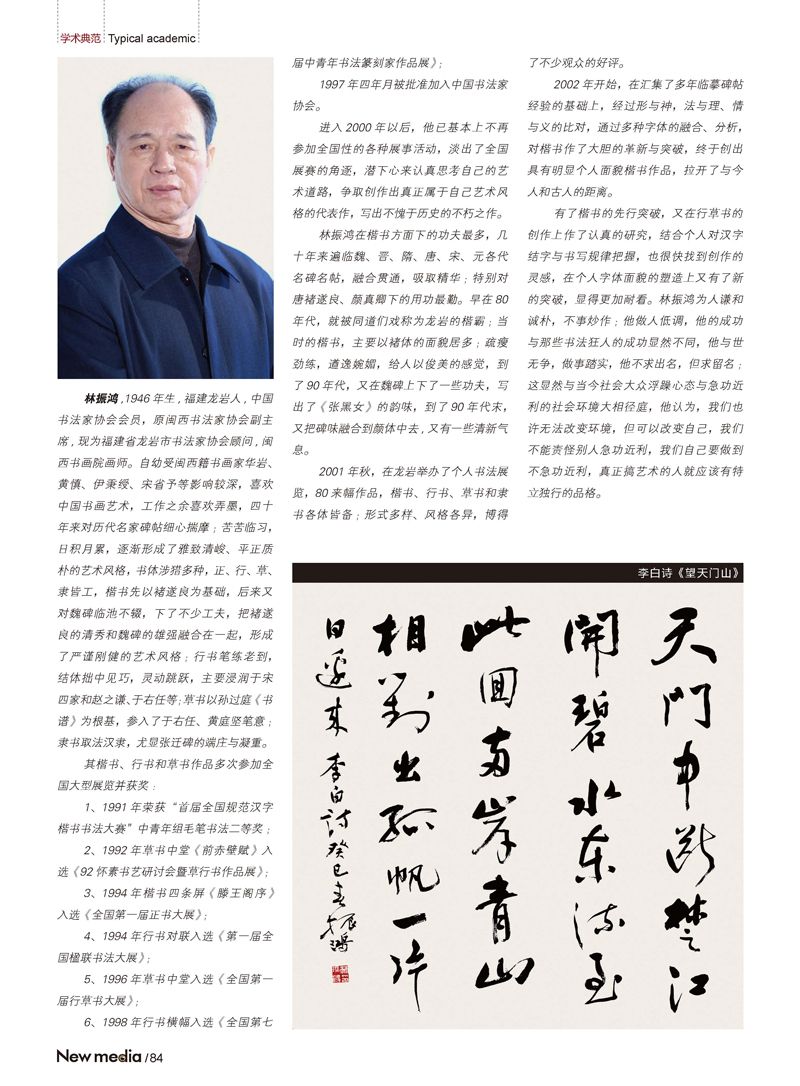 学术典范 Typical academic
林振鸿,1946年生,福建龙岩人,中国
书法家协会会员,原闽西书法家协会副主
席,现为福建省龙岩市书法家协会顾问,闽
西书画院画师。自幼受闽西籍书画家华岩、
黄慎、伊秉绶、宋省予等影响较深,喜欢
中国书画艺术,工作之余喜欢弄墨,四十
年来对历代名家碑帖细心揣摩;苦苦临习,
日积月累,逐渐形成了雅致清峻、平正质
朴的艺术风格,书体涉猎多种,正、行、草、
隶皆工,楷书先以褚遂良为基础,后来又
对魏碑临池不辍,下了不少工夫,把褚遂
良的清秀和魏碑的雄强融合在一起,形成
了严谨刚健的艺术风格;行书笔练老到,
结体拙中见巧,灵动跳跃,主要浸润于宋
四家和赵之谦、于右任等;草书以孙过庭《书
谱》为根基,参入了于右任、黄庭坚笔意;
隶书取法汉隶,尤显张迁碑的端庄与凝重。
其楷书、行书和草书作品多次参加全
国大型展览并获奖:
1、1991年荣获“首届全国规范汉字
楷书书法大赛”中青年组毛笔书法二等奖;
2、1992年草书中堂《前赤壁赋》入
选《92怀素书艺研讨会暨草行书作品展》;
3、1994年楷书四条屏《滕王阁序》
入选《全国第一届正书大展》;
4、1994年行书对联入选《第一届全
国楹联书法大展》;
5、1996年草书中堂入选《全国第一
届行草书大展》;
6、1998年行书横幅入选《全国第七
届中青年书法篆刻家作品展》;
1997年四年月被批准加入中国书法家
协会。
进入2000年以后,他已基本上不再
参加全国性的各种展事活动,淡出了全国
展赛的角逐,潜下心来认真思考自己的艺
术道路,争取创作出真正属于自己艺术风
格的代表作,写出不愧于历史的不朽之作。
林振鸿在楷书方面下的功夫最多,几
十年来遍临魏、晋、隋、唐、宋、元各代
名碑名帖,融合贯通,吸取精华;特别对
唐褚遂良、颜真卿下的用功最勤。早在80
年代,就被同道们戏称为龙岩的楷霸;当
时的楷书,主要以褚体的面貌居多;疏瘦
劲练,遒逸婉媚,给人以俊美的感觉,到
了90年代,又在魏碑上下了一些功夫,写
出了《张黑女》的韵味,到了90年代末,
又把碑味融合到颜体中去,又有一些清新气
息。
2001年秋,在龙岩举办了个人书法展
览,80来幅作品,楷书、行书、草书和隶
书各体皆备;形式多样、风格各异,博得
了不少观众的好评。
2002年开始,在汇集了多年临摹碑帖
经验的基础上,经过形与神,法与理、情
与义的比对,通过多种字体的融合、分析,
对楷书作了大胆的革新与突破,终于创出
具有明显个人面貌楷书作品,拉开了与今
人和古人的距离。
有了楷书的先行突破,又在行草书的
创作上作了认真的研究,结合个人对汉字
结字与书写规律把握,也很快找到创作的
灵感,在个人字体面貌的塑造上又有了新
的突破,显得更加耐看。林振鸿为人谦和
诚朴,不事炒作;他做人低调,他的成功
与那些书法狂人的成功显然不同,他与世
无争,做事踏实,他不求出名,但求留名;
这显然与当今社会大众浮躁心态与急功近
利的社会环境大相径庭,他认为,我们也
许无法改变环境,但可以改变自己,我们
不能责怪别人急功近利,我们自己要做到
不急功近利,真正搞艺术的人就应该有特
立独行的品格。
李白诗《望天门山》
天門中断楚江
開碧水东流至
此回两岸青山
相對出孤帆一片
日邊来 李白诗癸巳春振鸿
New media /84